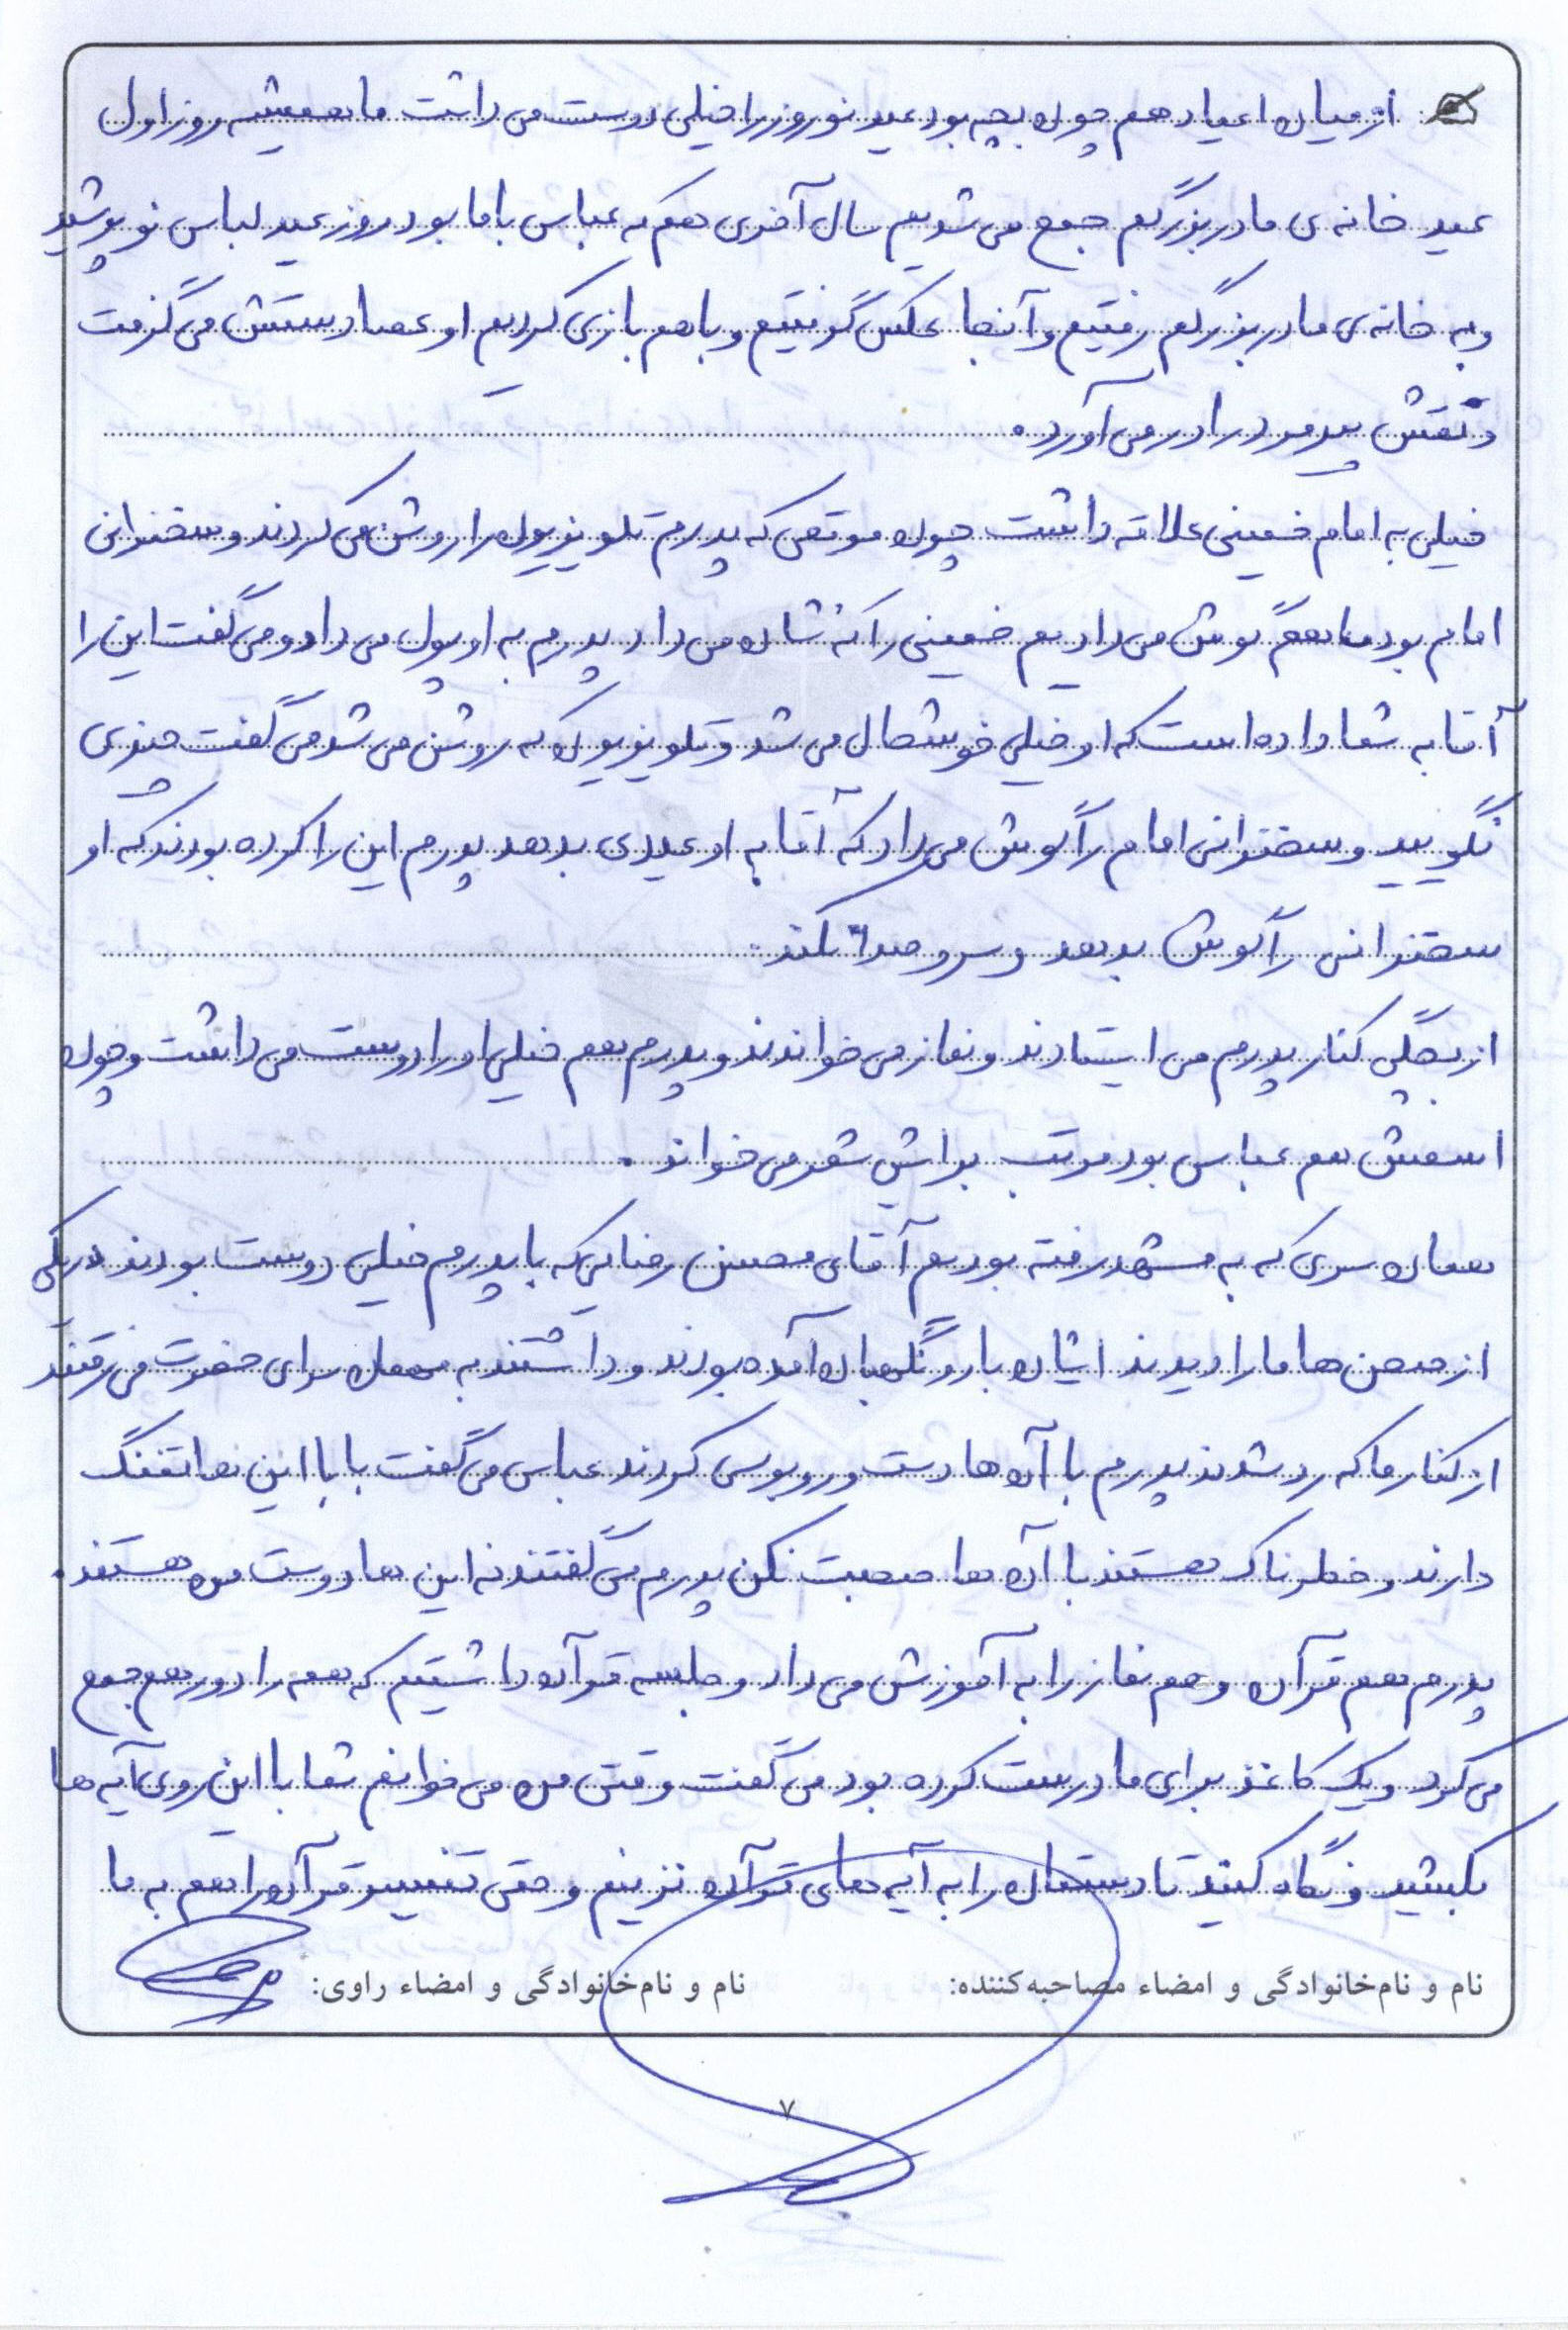 از میان اعیاد هم چون بچه بود عید نوروز را خیلی دوست می داشت ما همیشه روز اول
عید خانه ی مادربزرگم جمع می شدیم سال آخری هم که عباس با ما بود روز عید لباس نو پوشید
و به خانه ی مادربزرگم رفتیم و آنجا عکس گرفتیم و با هم بازی کردیم او عصا دستش می گرفت
و نقش پیرمرد را در می آورد.
خیلی به امام خمینی علاقه داشت چون موقعی که پدرم تلویزیون را روشن می کردند و سخنرانی
امام بود ما هم گوش می دادیم خمینی را که نشان می داد پدرم به او پول می داد و می گفت این را
آقا به شما داده است که او خیلی خوشحال می شد و تلویزیون که روشن می شد می گفت چیزی
نگویید و سخنرانی امام را گوش می داد که آقا به او عیدی بدهد پدرم این را کرده بودند که او
سخنرانی را گوش بدهد و سر و صدا نکند.
از بچگی کنار پدرم می ایستادند و نماز می خواندند و پدرم هم خیلی او را دوست می داشت و چون
اسمش هم عباس بود مرتب برایش شعر می خواند.
همان سری که به مشهد رفته بودیم آقای محسن رضایی که با پدرم خیلی دوست بودند در یکی
از صحن ها ما را دیدند ایشان با دو نگهبان آمده بودند و داشتند به مهمان سرای حضرت می رفتند
از کنار ما که رد شدند پدرم با آن ها دست و روبوسی کردند عباس می گفت بابا این ها تفنگ
دارند و خطرناک هستند با آن ها صحبت نکن پدرم می گفتند نه این ها دوست من هستند.
پدرم هم قرآن و هم نماز را به آموزش می داد و جلسه قرآن داشتیم که همه را دور هم جمع
می کرد و یک کاغذ برای ما درست کرده بود می گفت وقتی من می خوانم شما با این روی آیه ها
بکشید و نگاه کنید تا دستمان را به آیه های قرآن نزنیم و حتی تفسیر قرآن را هم به ما
نام و نام‌خانوادگی و امضاء مصاحبه‌کننده: نام و نام‌خانوادگی و امضاء راوی:
۷